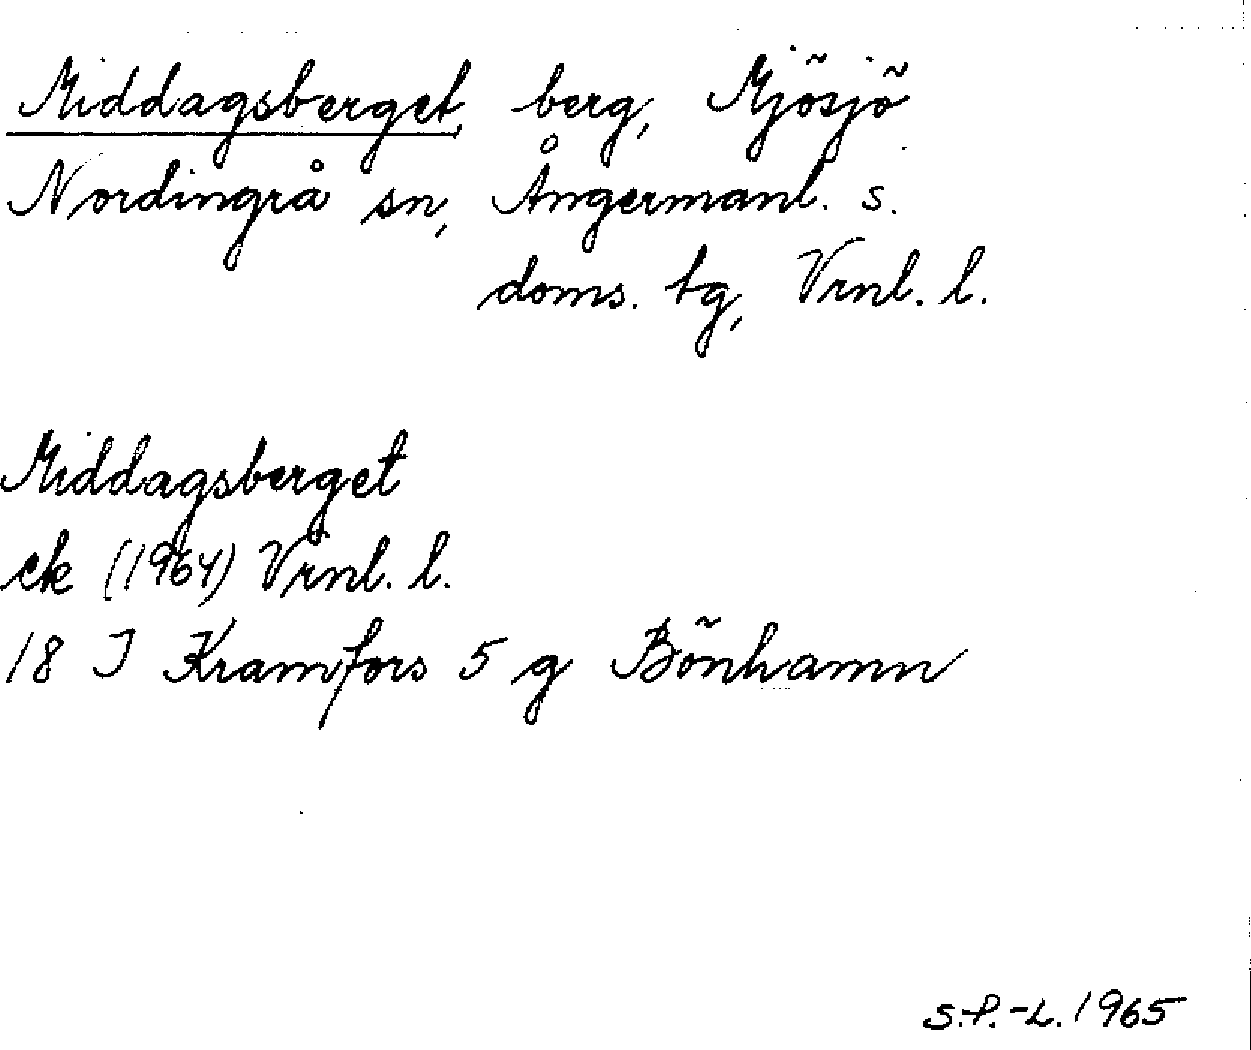 Middagsberget, berg, Mjösjö
Nordingrå sn, Ångermanl. s.
doms. tg, Vrnl. l.
Middagsberget
ek (1964) Vrnl. l.
18 I Kramfors 5 g Bönhamn
S.-P.-L. 1965